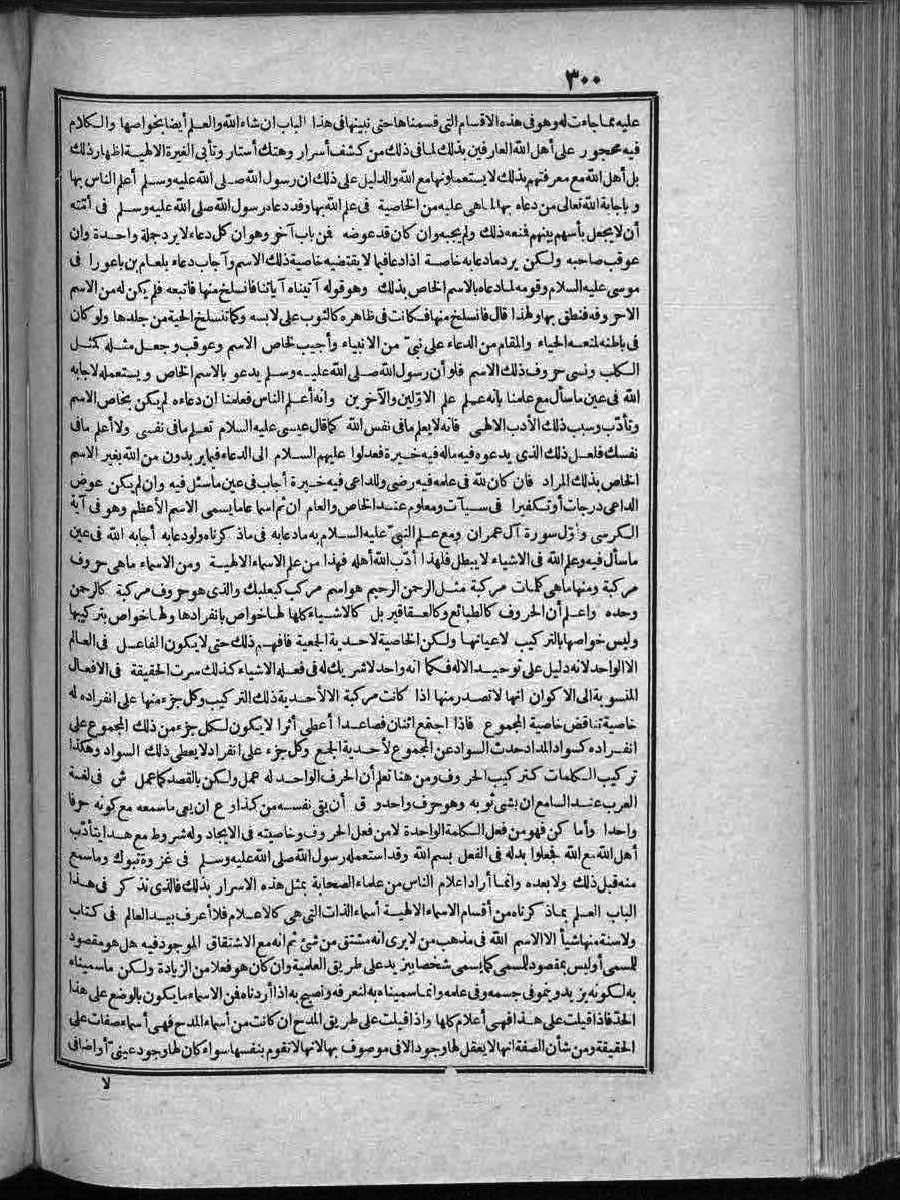 ٣٠٠
عليه بما جاءت له وهو فى هذه الاقسام التى قسمناها حتى نبينها فى هذا الباب ان شاء الله والعلم أيضا بخواصها والكلام
فيه محجور على أهل الله العارفين بذلك لما فى ذلك من كشف أسرار وهتك أستار وتأبى الغيرة الالهية اظهار ذلك
بل أهل الله مع معرفتهم بذلك لا يستعملونها مع الله والدليل على ذلك ان رسول الله صلى الله عليه وسلم أعلم الناس بها
وباجابة الله تعالى من دعاه بها لما هى عليه من الخاصية فى علم الله بها وقد دعا رسول الله صلى الله عليه وسلم فى أمّته
أن لا يجعل بأسهم بينهم فمنعه ذلك ولم يجبه وان كان قد عوضه فمن باب آخر وهو ان كل دعاء لا يرد جملة واحدة وان
عوقب صاحبه ولكن يرد ما دعا به خاصة اذا دعا فيما لا يقتضيه خاصية ذلك الاسم وأجاب دعاء بلعام بن باعورا فى
موسى عليه السلام وقومه لما دعاه بالاسم الخاص بذلك وهو قوله آتيناه آياتنا فانسلخ منها فاتبعه فلم يكن له من الاسم
الا حروفه فنطق بها ولهذا قال فانسلخ منها فكانت فى ظاهره كالثوب على لابسه وكما تنسلخ الحية من جلدها ولو كان
فى باطنه لمنعه الحياء والمقام من الدعاء على نبىّ من الانبياء وأجيب لخاص الاسم وعوقب وجعل مثله كمثل
الكلب ونسى حروف ذلك الاسم فلو أن رسول الله صلى الله عليه وسلم يدعو بالاسم الخاص ويستعمله لاجابه
الله فى عين ما سأل مع علمنا بانه علم علم الاوّلين والآخرين وانه أعلم الناس فعلمنا ان دعاءه لم يكن بخاص الاسم
وتأدّب وسبب ذلك الأدب الالهى فانه لا يعلم ما فى نفس الله كما قال عيسى عليه السلام تعلم ما فى نفسى ولا أعلم ما فى
نفسك فلعل ذلك الذى يدعوه فيه ماله فيه خيرة فعدلوا عليهم السلام الى الدعاء فيما يريدون من الله بغير الاسم
الخاص بذلك المراد فان كان لله فى علمه فيه رضى وللداعى فيه خيرة أجاب فى عين ما سئل فيه وان لم يكن عوض
الداعى درجات أو تكفيرا فى سيآت ومعلوم عند الخاص والعام ان ثم اسما عاما يسمى الاسم الأعظم وهو فى آية
الكرسى وأوّل سورة آل عمران ومع علم النبىّ عليه السلام به ما دعا به فى ما ذكرناه ولو دعا به أجابه الله فى عين
ما سأل فيه وعلم الله فى الاشياء لا يبطل فلهذا أدّب الله أهله فهذا من علم الاسماء الالهية ومن الاسماء ما هى حروف
مركبة ومنها ما هى كلمات مركبة مثل الرحمن الرحيم هو اسم مركب كبعلبك والذى هو حروف مركبة كالرحمن
وحده واعلم أن الحروف كالطبائع وكالعقاقير بل كالاشياء كلها لها خواص بانفرادها ولها خواص بتركيبها
وليس خواصها بالتركيب لاعيانها ولكن الخاصية لاحدية الجمعية فافهم ذلك حتى لا يكون الفاعل فى العالم
الا الواحد لانه دليل على توحيد الاله فكما انه واحد لا شريك له فى فعله الاشياء كذلك سرت الحقيقة فى الافعال
المنسوبة الى الاكوان انها لا تصدر منها اذا كانت مركبة الا لأحدية ذلك التركيب وكل جزء منها على انفراده له
خاصية تناقض خاصية المجموع فاذا اجتمع اثنان فصاعدا أعطى أثرا لا يكون لكل جزء من ذلك المجموع على
انفراده كسواد المداد حدث السواد عن المجموع لأحدية الجمع وكل جزء على انفراد لا يعطى ذلك السواد وهكذا
تركيب الكلمات كتركيب الحروف ومن هنا تعلم أن الحرف الواحد له عمل ولكن بالقصد كما عمل ش فى لغة
العرب عند السامع ان يشى ثوبه وهو حرف واحد و ق أن يقى نفسه من كذا و ع ان يعى ما سمعه مع كونه حرفا
واحدا وأما كن فهو من فعل الكلمة الواحدة لا من فعل الحروف وخاصيته فى الايجاد وله شروط مع هذا يتأدّب
أهل الله مع الله فجعلوا بدله فى الفعل بسم الله وقد استعمله رسول الله صلى الله عليه وسلم فى غزوة تبوك وما سمع
منه قبل ذلك ولا بعده وانما أراد اعلام الناس من علماء الصحابة بمثل هذه الاسرار بذلك فالذى نذكر فى هذا
الباب العلم بما ذكرناه من أقسام الاسماء الالهية أسماء الذات التى هى كالاعلام فلا أعرف بيد العالم فى كتاب
ولا سنة منها شيأ الا الاسم الله فى مذهب من لا يرى انه مشتق من شئ ثم انه مع الاشتقاق الموجود فيه هل هو مقصود
للمسمى أو ليس بمقصود للمسمى كما يسمى شخصا بيزيد على طريق العلمية وان كان هو فعلا من الزيادة ولكن ما سميناه
به لكونه يزيد وينمو فى جسمه وفى علمه وانما سميناه به لنعرفه ونصيح به اذا أردناه فمن الاسماء ما يكون بالوضع على هذا
الحدّ فاذا قيلت على هذا فهى أعلام كلها واذا قيلت على طريق المدح ان كانت من أسماء المدح فهى أسماء صفات على
الحقيقة ومن شأن الصفة انها لا يعقل لها وجود الا فى موصوف بها لانها لا تقوم بنفسها سواء كان لها وجود عينىّ أو اضافى
لا